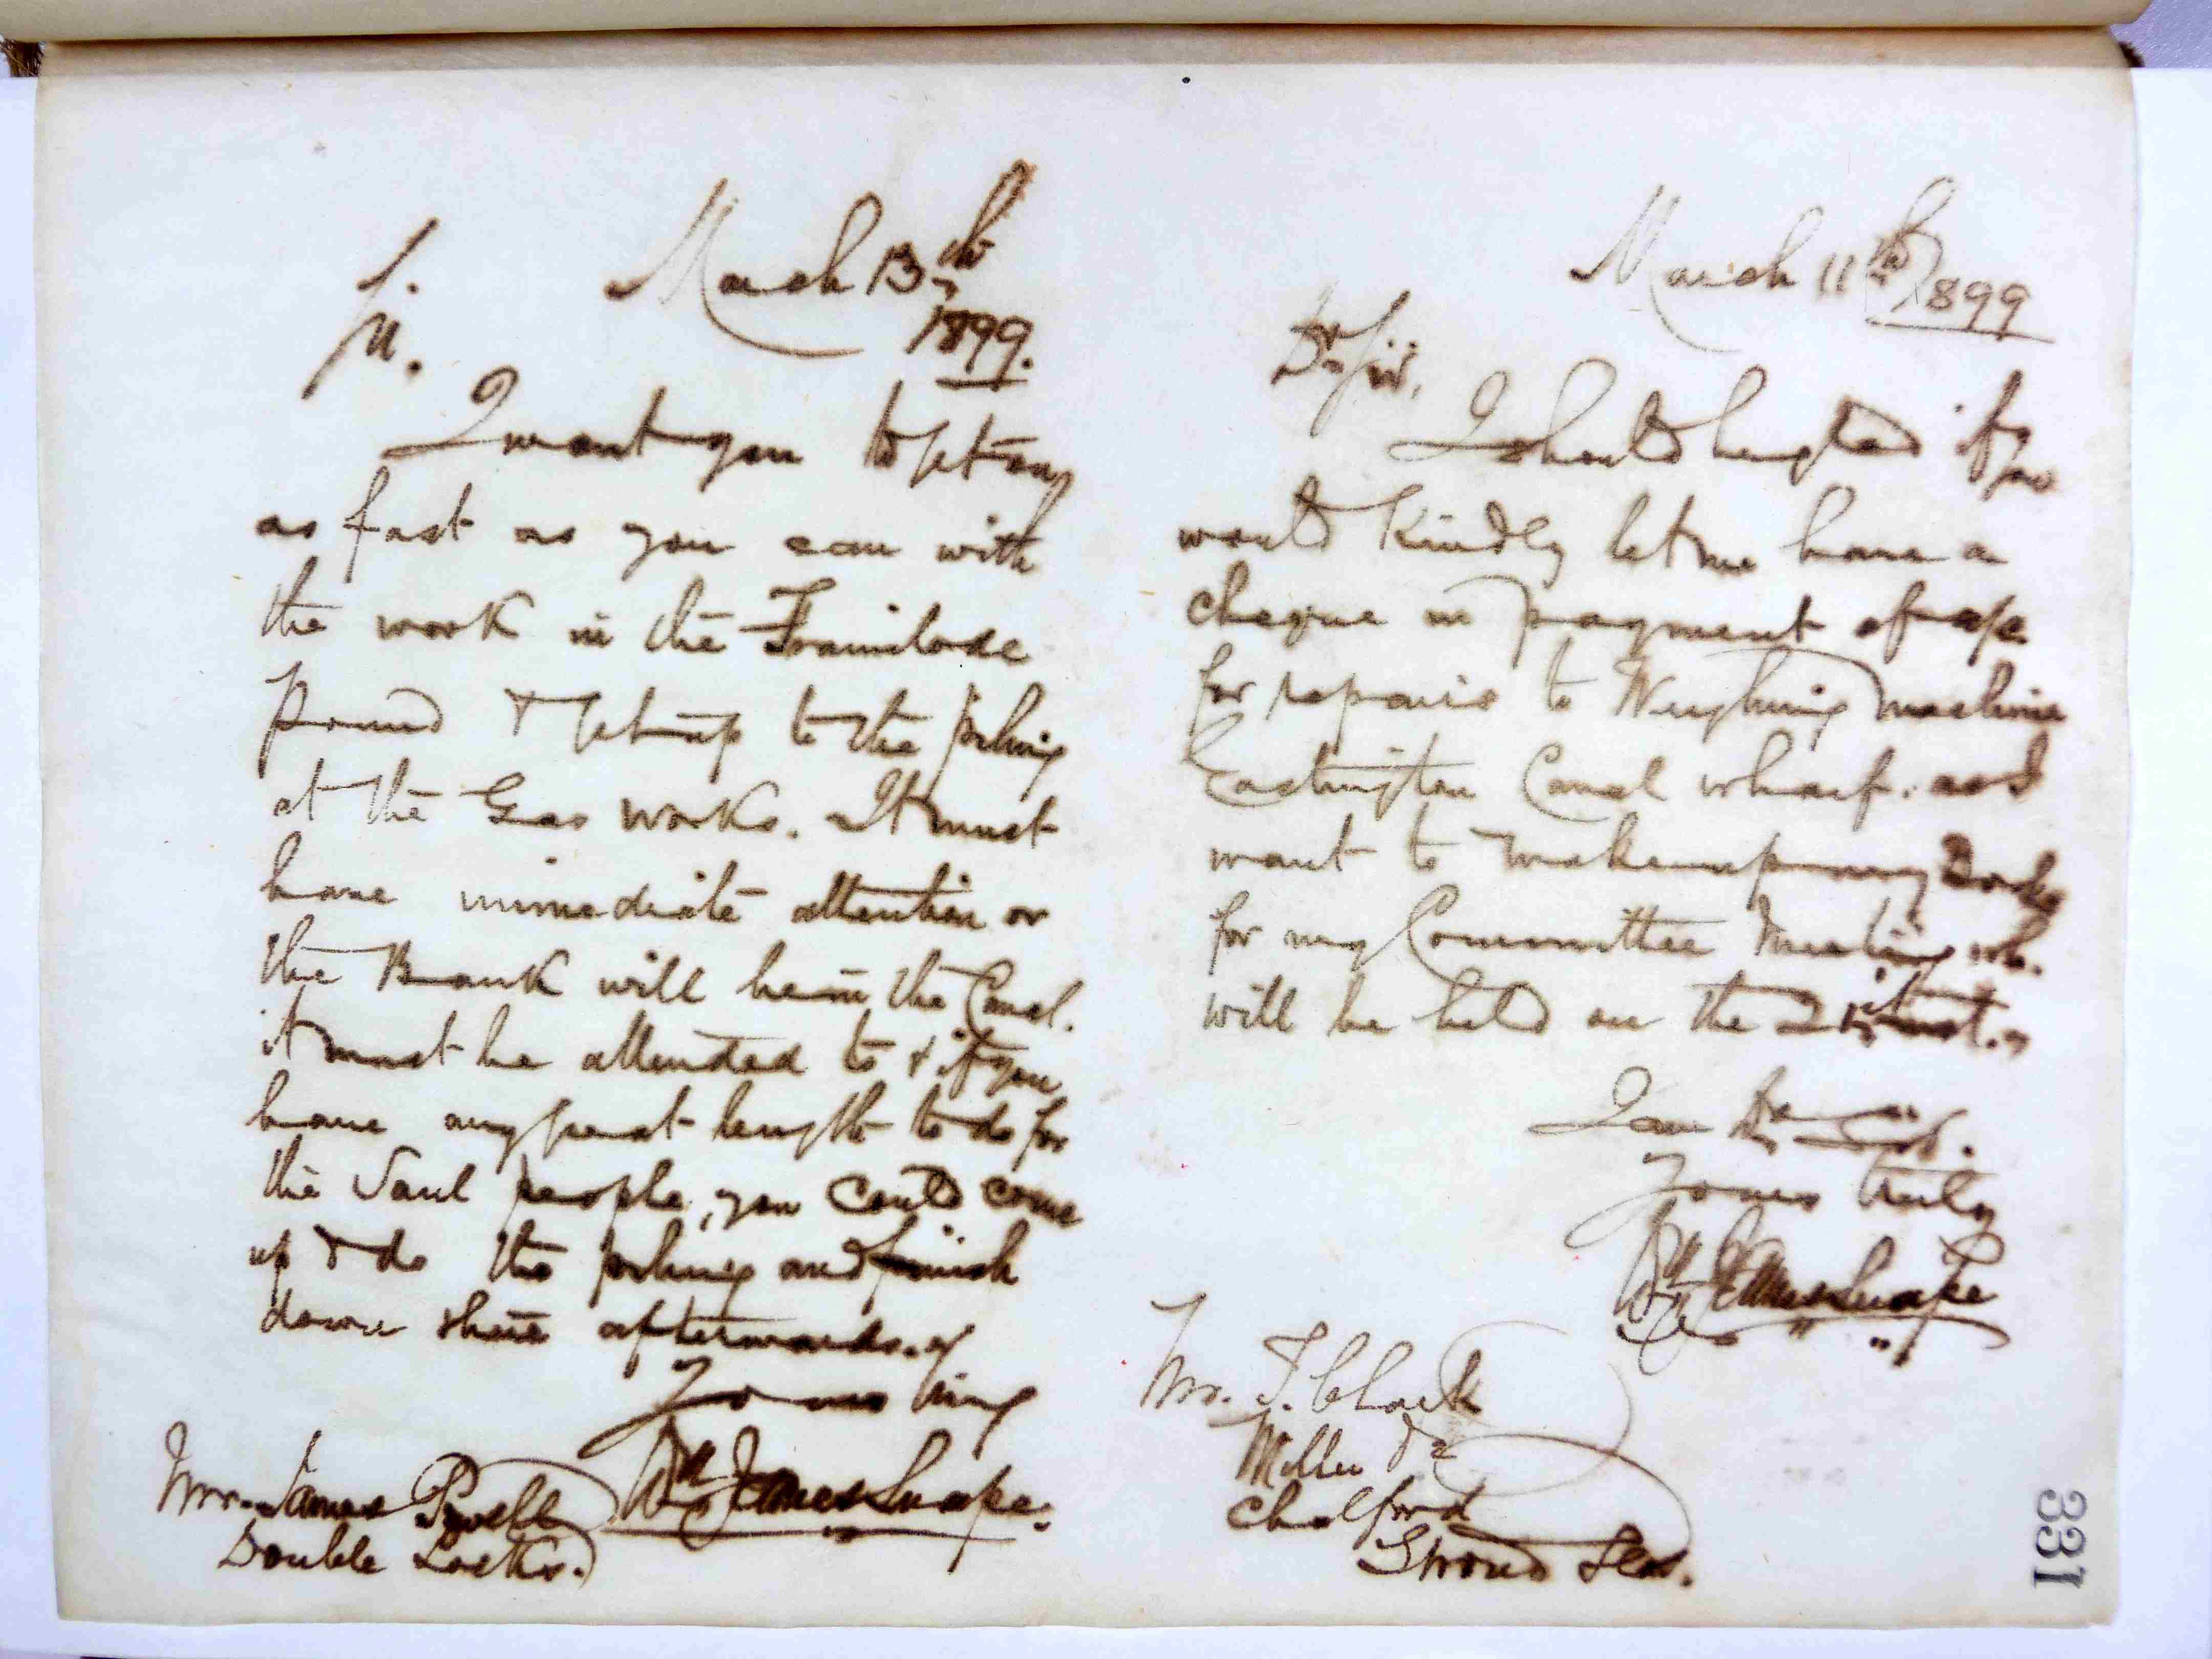 March 13th
1899.
Sir.
I want you to get on
as fast as you can with
the work in the Framilode
Pound & get up to the piling
at the Gas Works. It must
have immediate attention or
the Bank will be in the Canal.
it must be attended to & if you
have any great length to do for
the Saul people, you could come
up & do the piling and finish
down there afterwards.
Yours truly
Wm James Snape.
Mr. James Powell
Double Locks.
March 11th 1899
Dr Sir,
I should be glad if you
would Kindly let me have a
cheque in payment of a/c
for repairs to Weighing Machine
Eastington Canal Wharf. as I
want to make up my Books
for my Committee Meeting wh.
will be held on the 21st inst.
I am Dr Sir.
Yours truly
Wm James Snape
Mr. T. Clack
Miller &c
Chalford
Stroud Glos.
331